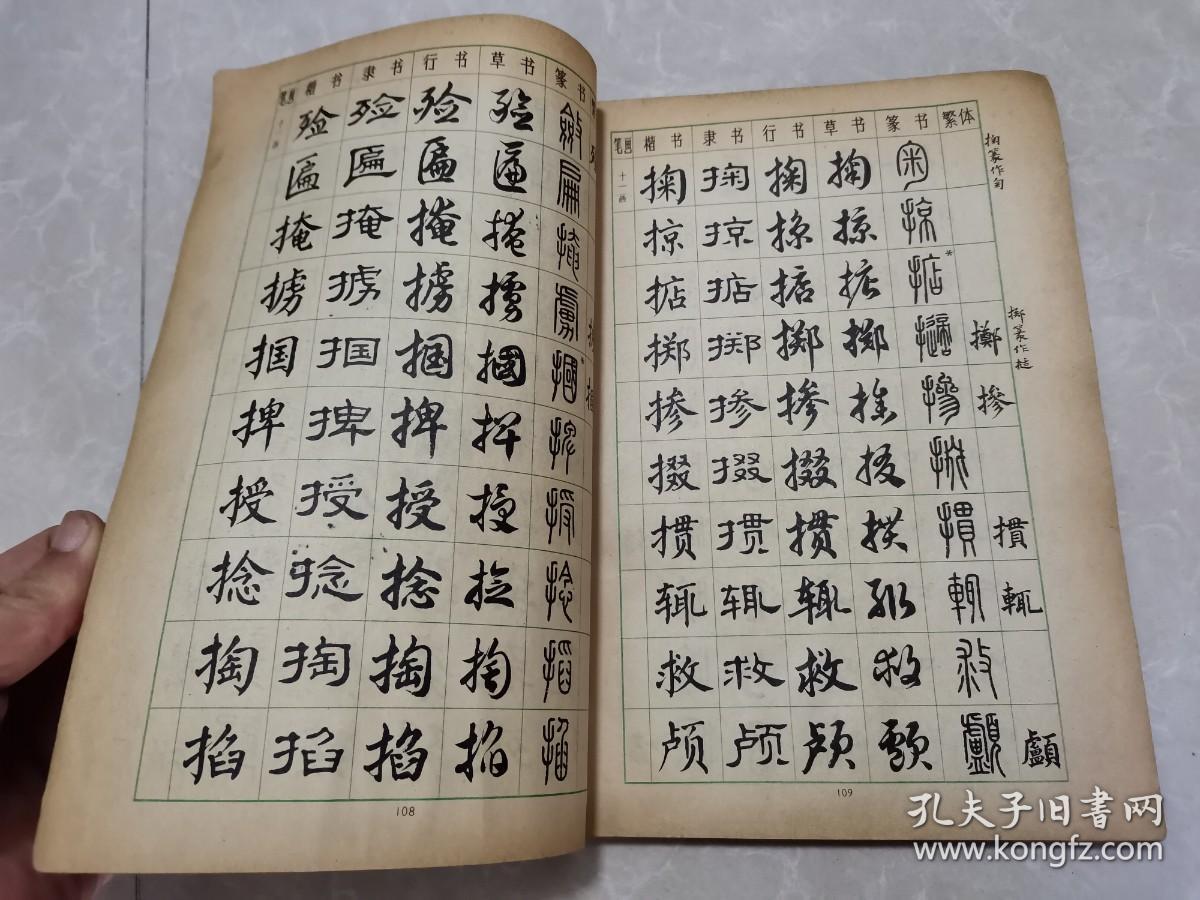 笔画 楷书 隶书 行书 草书 篆书
十一画 殓 殓 殓 殓
匾 匾 匾 匾
掩 掩 掩 掩 掩
掳 掳 掳 擄
掴 掴 摑 摑 摑
捭 捭 捭 捭 捭
授 授 授 授 授
捻 捻 捻 捻 捻
掏 掏 掏 掏 掏
掐 掐 掐 掐 掐
108
笔画 楷书 隶书 行书 草书 篆书 繁体
十一画 掬 掬 掬 掬
掬篆作匊
掠 掠 掠 掠 掠
掂 掂 掂 掂 掂*
掷 掷 掷 掷 擲
掷篆作𢷏
掺 掺 掺 掺 摻 摻
掇 掇 掇 掇 掇
掼 掼 掼 掼 摜 摜
辄 辄 辄 辄 輒 輒
救 救 救 救 救
颅 颅 颅 颅 顱 顱
109
孔夫子旧书网
www.kongfz.com